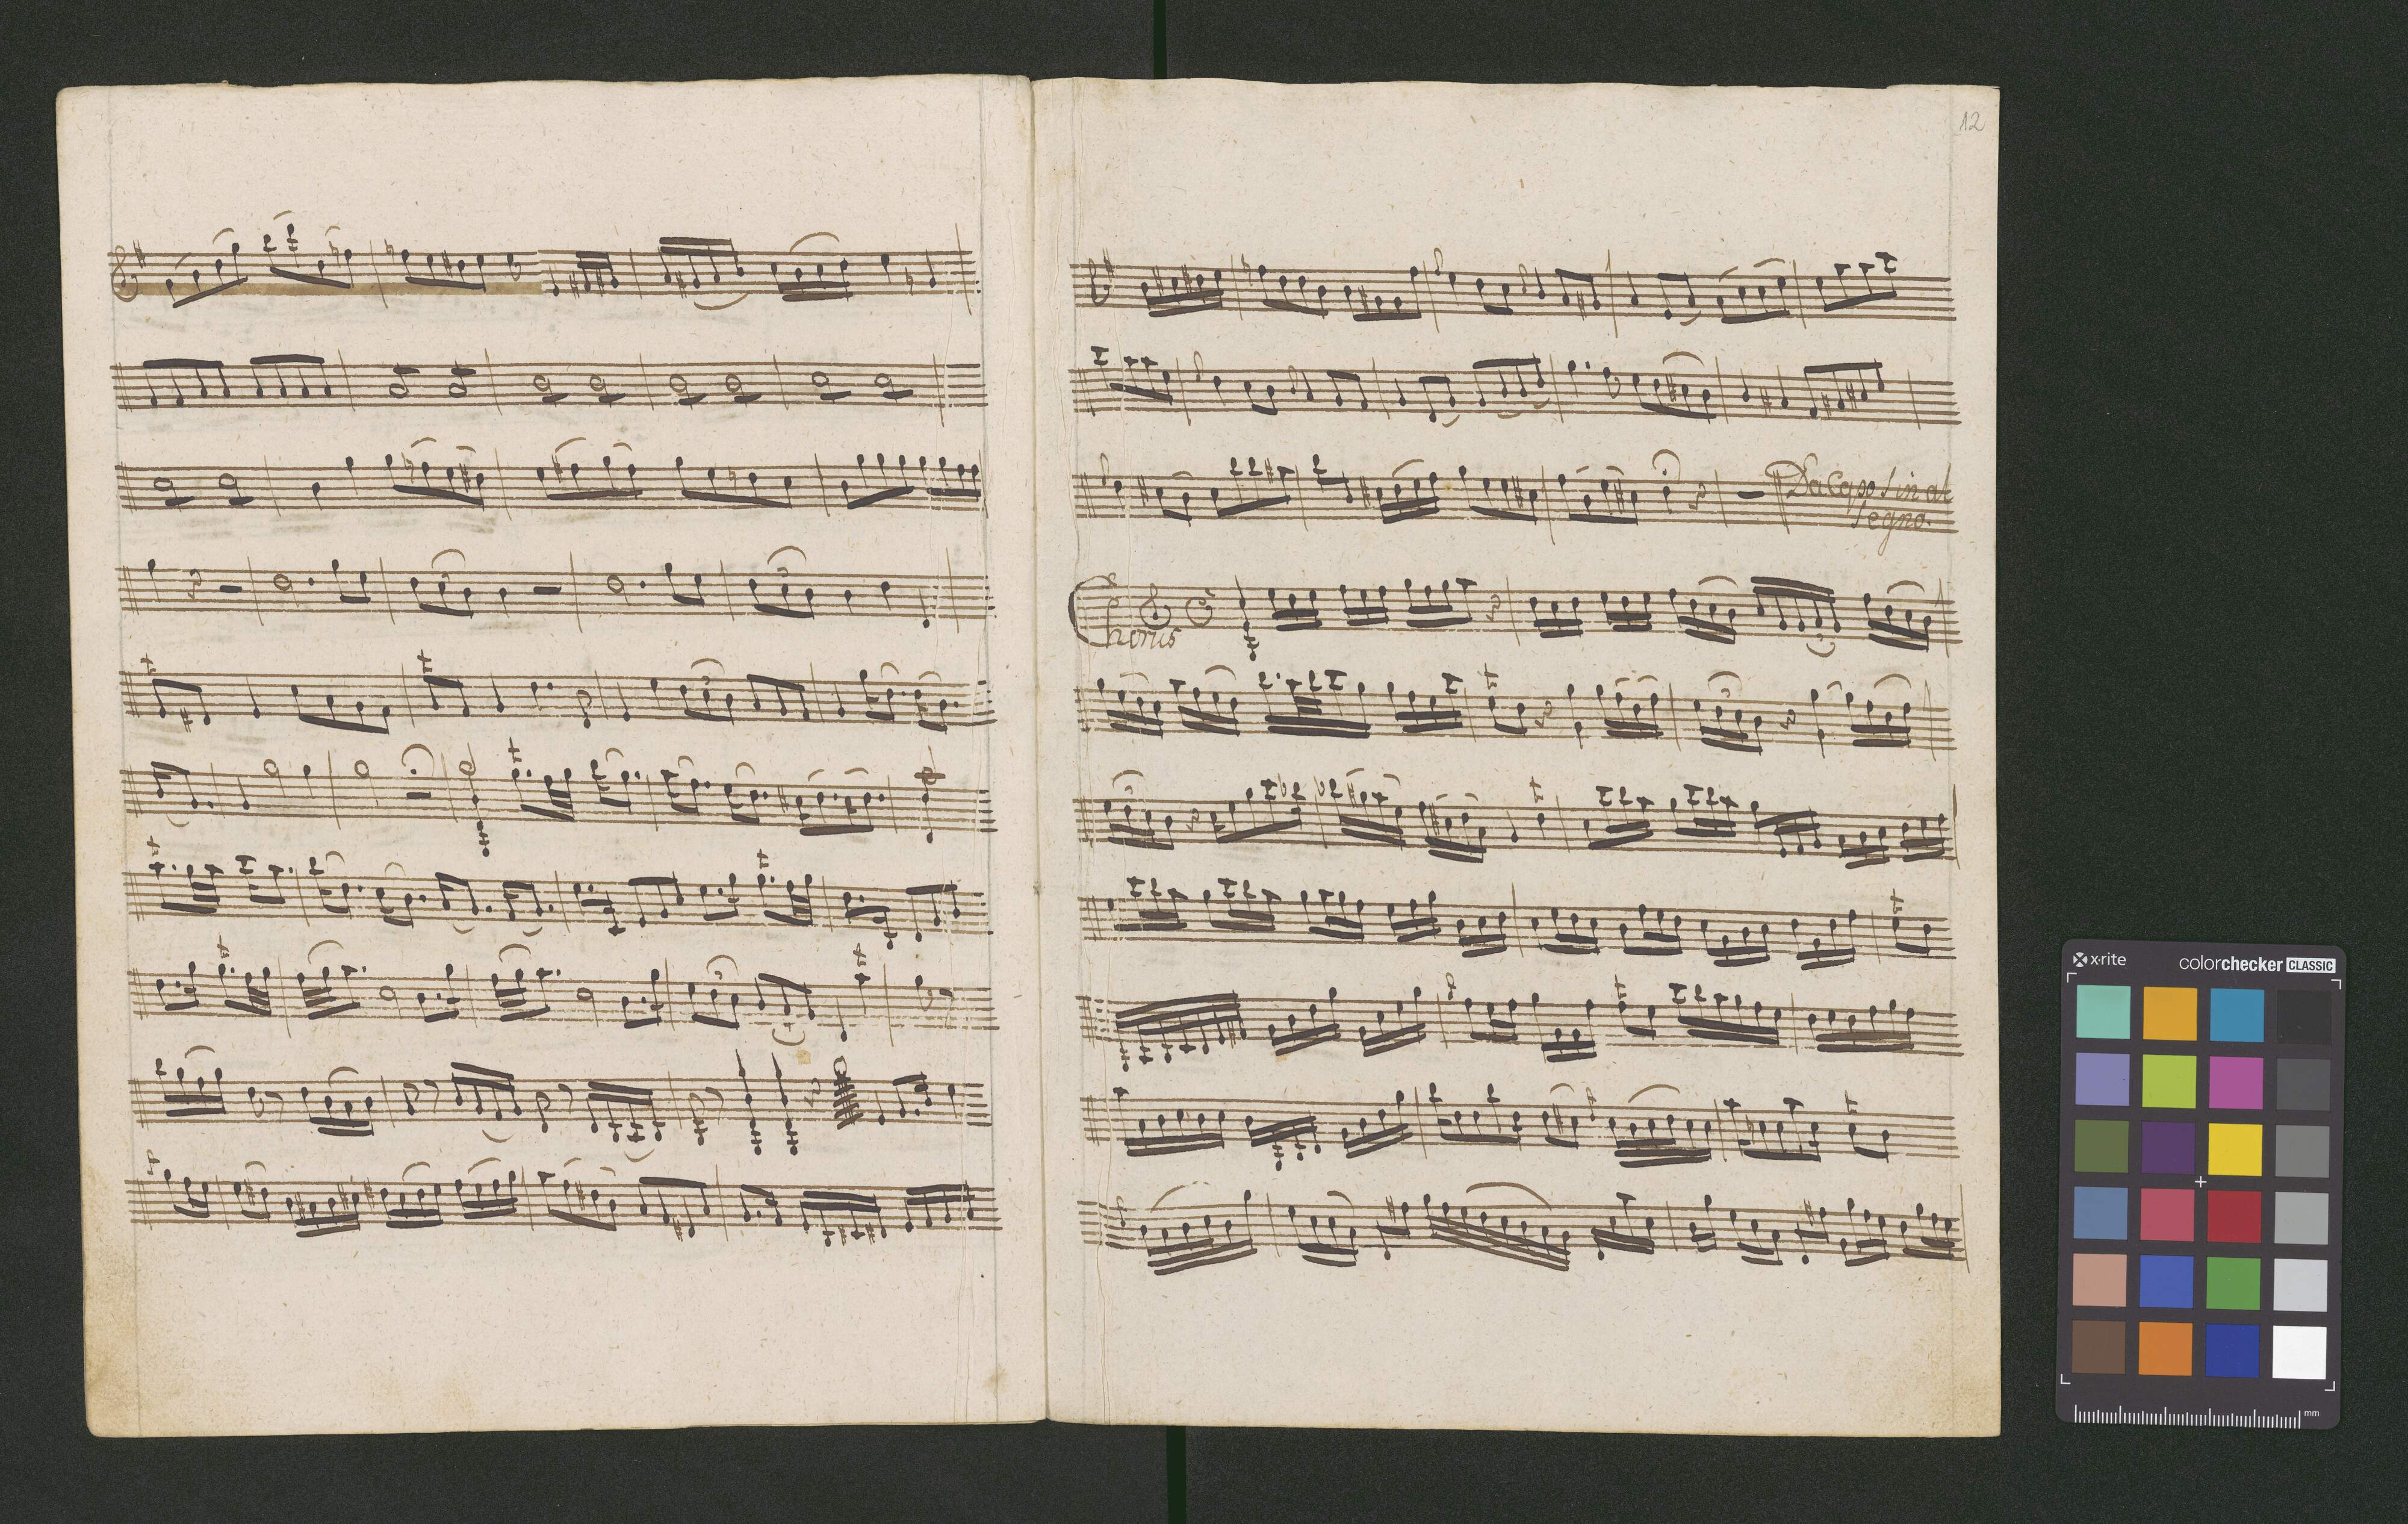 12
Da Capo sin al
segno.
Chorus
x-rite
colorchecker CLASSIC
mm